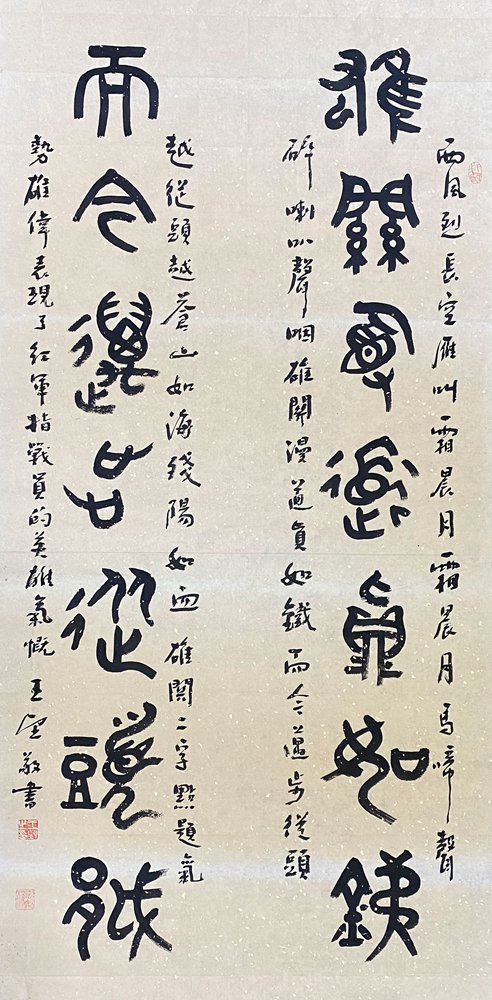 西風烈長空雁叫霜晨月霜晨月馬啼聲
雄關漫道真如鐵
碎喇叭聲咽雄關漫道真如鐵而今邁步從頭
越從頭越蒼山如海殘陽如血雄關二字點題氣
而今邁步從頭越
勢雄偉表現了紅軍指戰員的英雄氣慨 王望敬書